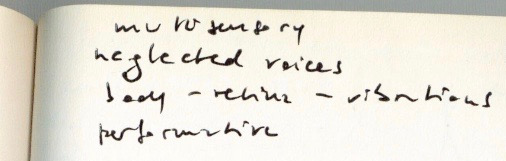 multisensory
neglected voices
body - retina - vibrations
performative